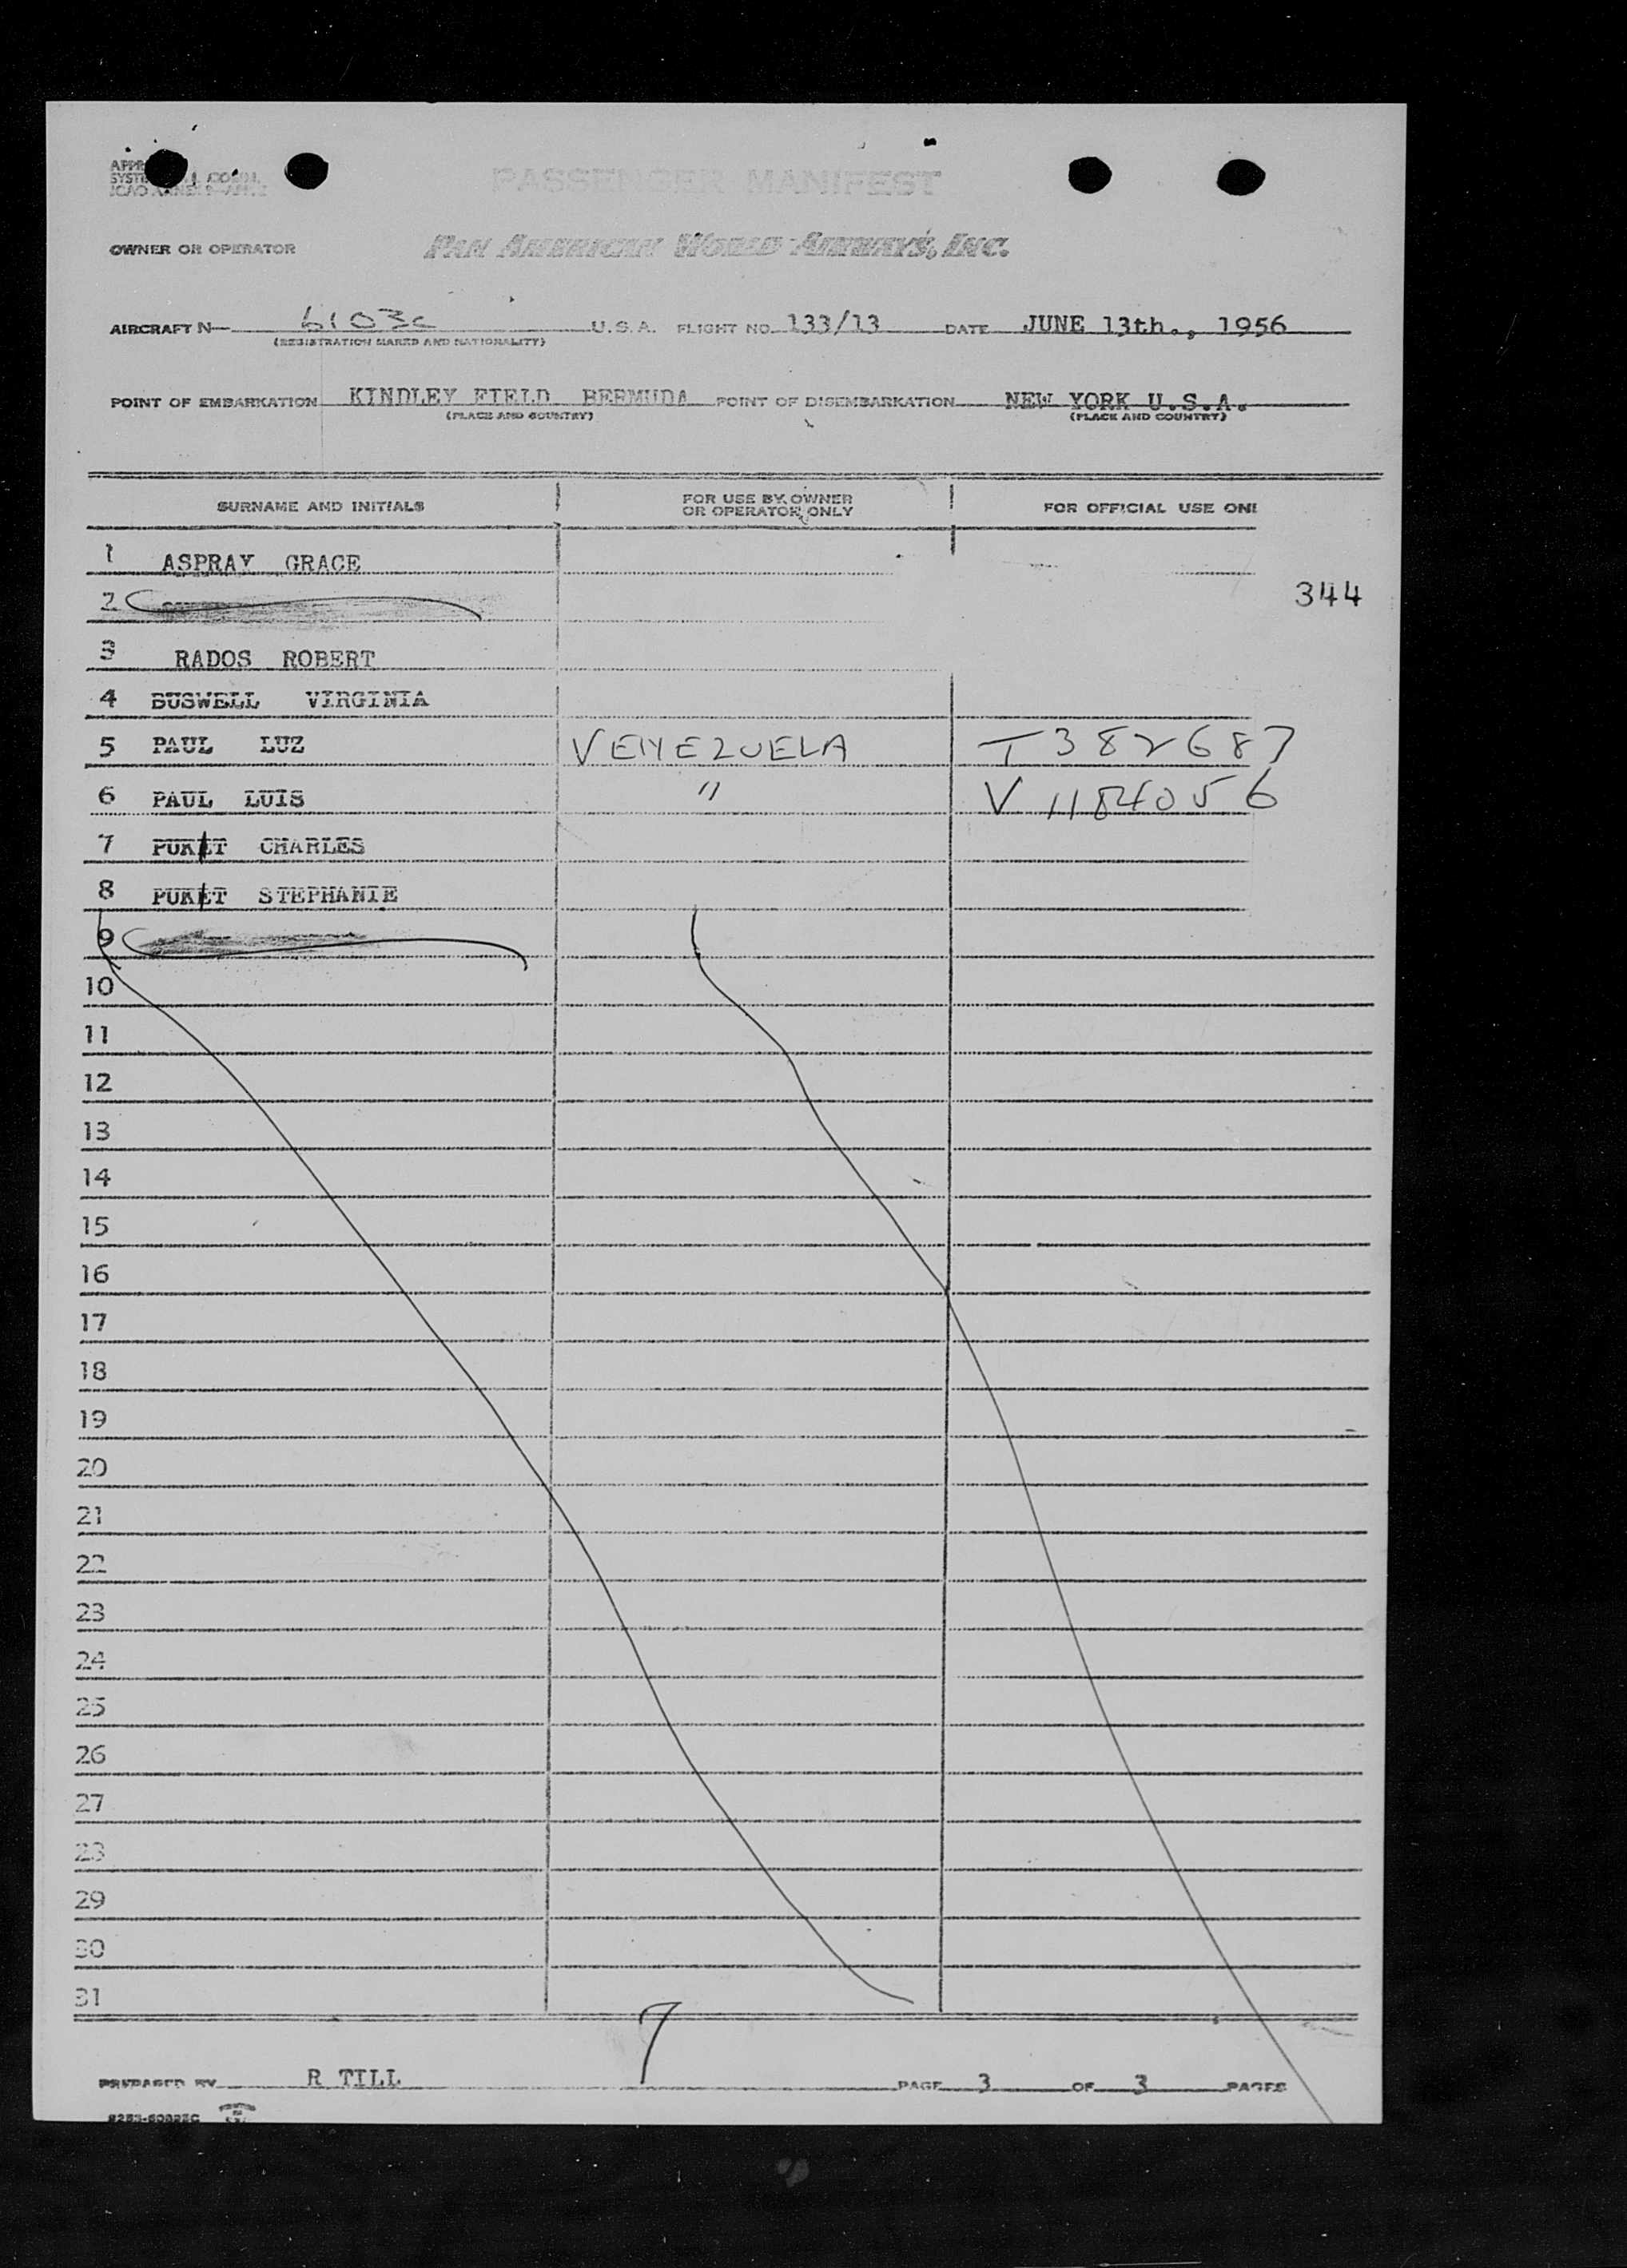 PASSENGER MANIFEST
OWNER OR OPERATOR PAN AMERICAN WORLD AIRWAYS, INC.
AIRCRAFT N- 6103C U.S.A. FLIGHT NO. 133/13 DATE JUNE 13th., 1956
(REGISTRATION MARKS AND NATIONALITY)
POINT OF EMBARKATION KINDLEY FIELD BERMUDA POINT OF DISEMBARKATION NEW YORK U.S.A.
(PLACE AND COUNTRY) (PLACE AND COUNTRY)
SURNAME AND INITIALS FOR USE BY OWNER OR OPERATOR ONLY FOR OFFICIAL USE ONL
1 ASPRAY GRACE
2 344
3 RADOS ROBERT
4 BUSWELL VIRGINIA
5 PAUL LUZ VENEZUELA T382687
6 PAUL LUIS " V 1184056
7 CHARLES
8 STEPHANIE
9
10
11
12
13
14
15
16
17
18
19
20
21
22
23
24
25
26
27
28
29
30
31
7
PREPARED BY R TILL PAGE 3 OF 3 PAGES